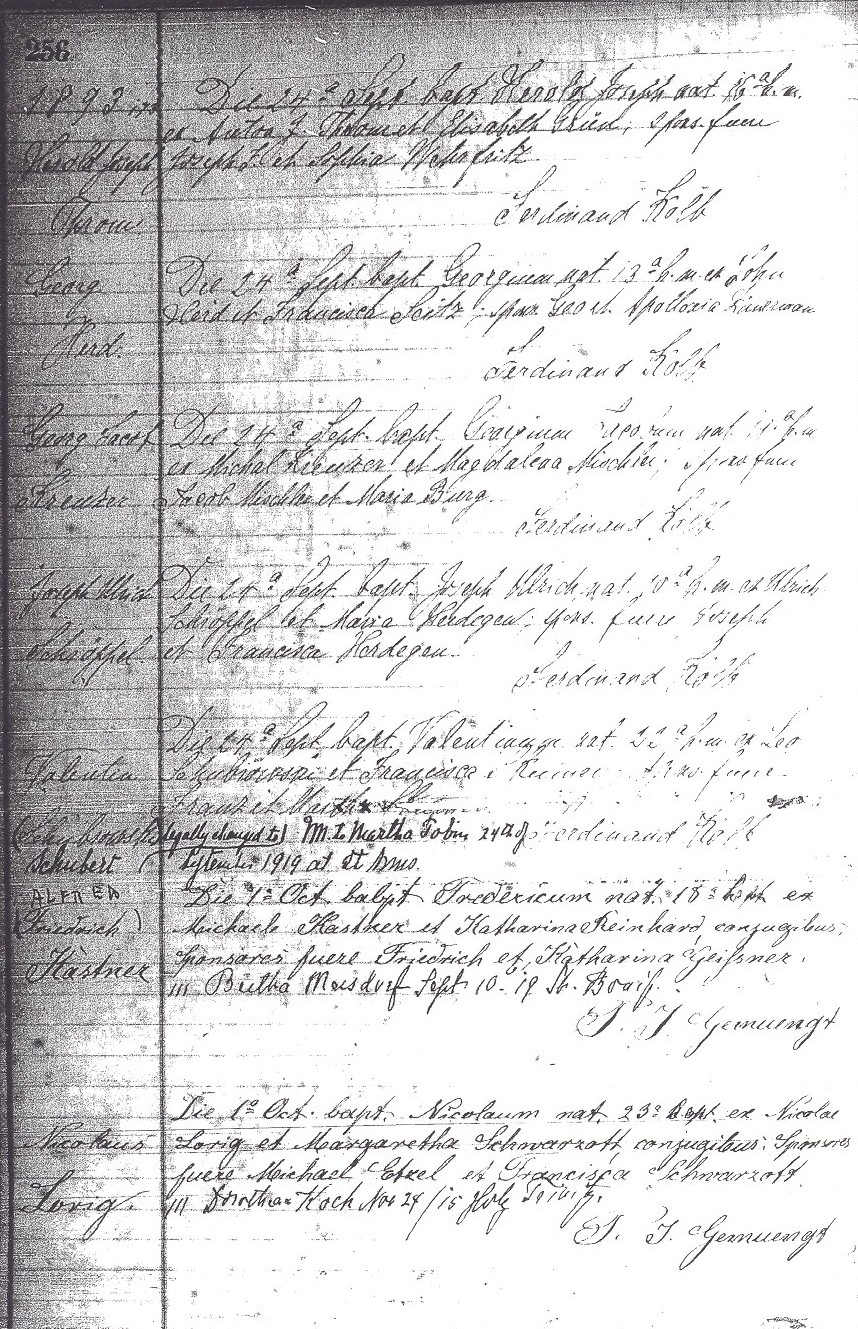 256
1893
Die 24ª Sept bapt Herold Joseph nat 16ª h.m.
ex Anton J. Throm et Elisabeth Grün; spons fuere
Herold Joseph
Joseph S. et Sophia
Throm
Ferdinand Kolb
Georg
Die 24ª Sept. bapt Georgium nat 13ª h.m. ex John
Herd et Francisca Seitz; spons Geo et Apollonia
Herd.
Ferdinand Kolb
Georg Jacob
Die 24ª Sept. bapt. Georgium Jacobum nat. h.m.
ex Michal Kreuzer et Magdalena Mischler; spons fuere
Kreuzer
Jacob Mischler et Maria Burg.
Ferdinand Kolb
Joseph Ulrich
Die 24ª Sept. bapt. Joseph Ulrich nat. 10ª h.m. ex Ulrich
Schröppel et Maria Herdegen; spons. fuere Joseph
Schröppel
et Francisca Herdegen.
Ferdinand Kolb
Die 24ª Sept. bapt. Valentinum nat. 22ª h.m. ex Leo
Valentin
et Francisca fuere
Franz et
(legally changed to) M. to Martha Tobin 24th of Ferdinand Kolb
Schubert
September 1919 at St Anns.
ALFRED
Die 1ª Oct. babpt Fredericum nat. 18ª Sept. ex
(Friedrich)
Michaele Kastner et Katharina Reinhard, conjugibus;
Sponsores fuere Friedrich et Katharina Geissner.
Kastner
m Sept 10-19 St. Bonif.
S. J. Gemuengt
Die 1ª Oct. bapt. Nicolaum nat. 23ª Sept. ex Nicolae
Nicolaus
Lorig et Margaretha Schwarzott, conjugibus. Sponsores
fuere Michael Etzel et Francisca Schwarzott.
Lorig.
m Dorothea Koch Nov 24/15 Holy Trinity.
S. J. Gemuengt